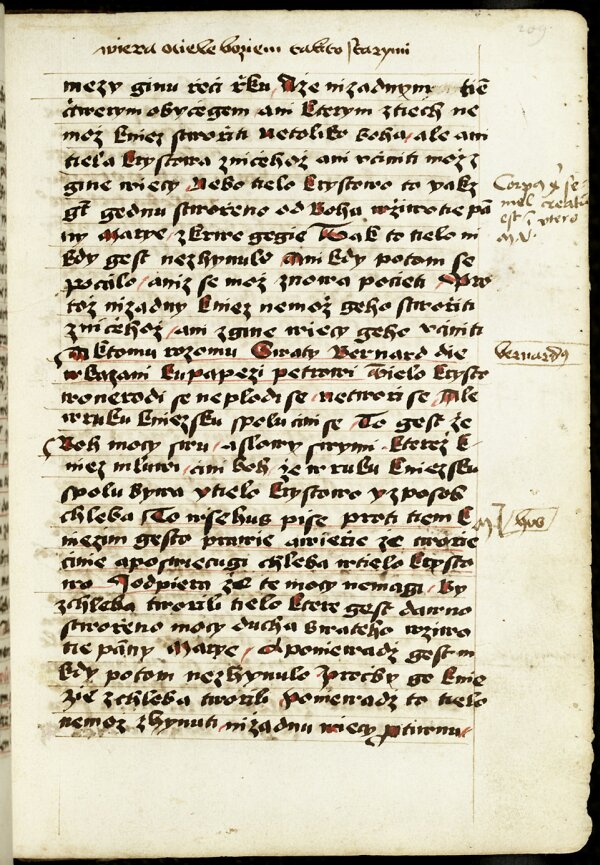 wiera o tiele boziem takto starymi
209
mezy ginu řeči řku Aže nizadnym tiē
čtwerym obyčegem ani kterym z tiech ne
mož kniez stwořiti netoliko boha ale ani
tiela krystowa zničehož ani včiniti možz
gine wiecy Nebo tielo krystowo to yakz
gt gednu stwořeno od Boha wžiwotie pā
ny Marye z krwe gegie Tak to tielo ni
kdy gest nezhynulo Ani kdy potom se
počalo aniz se mož znowa počieti Pro
tož nizadny kniez nemož geho stwořiti
zničehož ani zgine wiecy geho včiniti
A ktomu rozomu Swaty Bernard die
wkazani ku papezi petrowi Tielo krysto
wo nerodi se neplodi se networi se Ale
w ruku kniezsku spolu cini se To gest že
Boh mocy swu a slowy swymi kterez k
niez mluwi cini boh že w ruku kniezsku
spolu bywa y tielo krystowo y zposob
chleba To wse hus pise proti tiem k
niezim gesto prawie a wierie že tworie
cinie a poswiecugi chleba w tielo krysto
wo Podpiera že te mocy nemagi By
z chleba tworili tielo ktere gest dawno
stwořeno mocy ducha swateho wžiwo
tie pāny Marye A poniewadž gest ni
kdy potom nezhynulo Pročby ge knie
zie z chleba tworili Poniewadž to tielo
nemož zhynuti nizadnu wiecy ptiwnu
Corpus xi se
mel creatū
est ī vtero
Mͥ
bernardus
hus